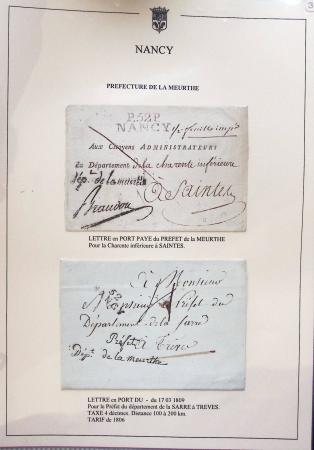 NANCY
PREFECTURE DE LA MEURTHE
P.52.P
NANCY
Aux Citoyens ADMINISTRATEURS
du Département de la charente inférieure
Dép.t de la meurthe
à Saintes
LETTRE en PORT PAYE du PREFET de la MEURTHE
Pour la Charente inférieure à SAINTES.
à Monsieur
Monsieur Préfet du
Département de la sarre
Préfet à Trèves
Dép.t de la meurthe
LETTRE en PORT DU - du 17 03 1809
Pour le Préfet du département de la SARRE à TREVES.
TAXE 4 décimes. Distance 100 à 200 km.
TARIF de 1806